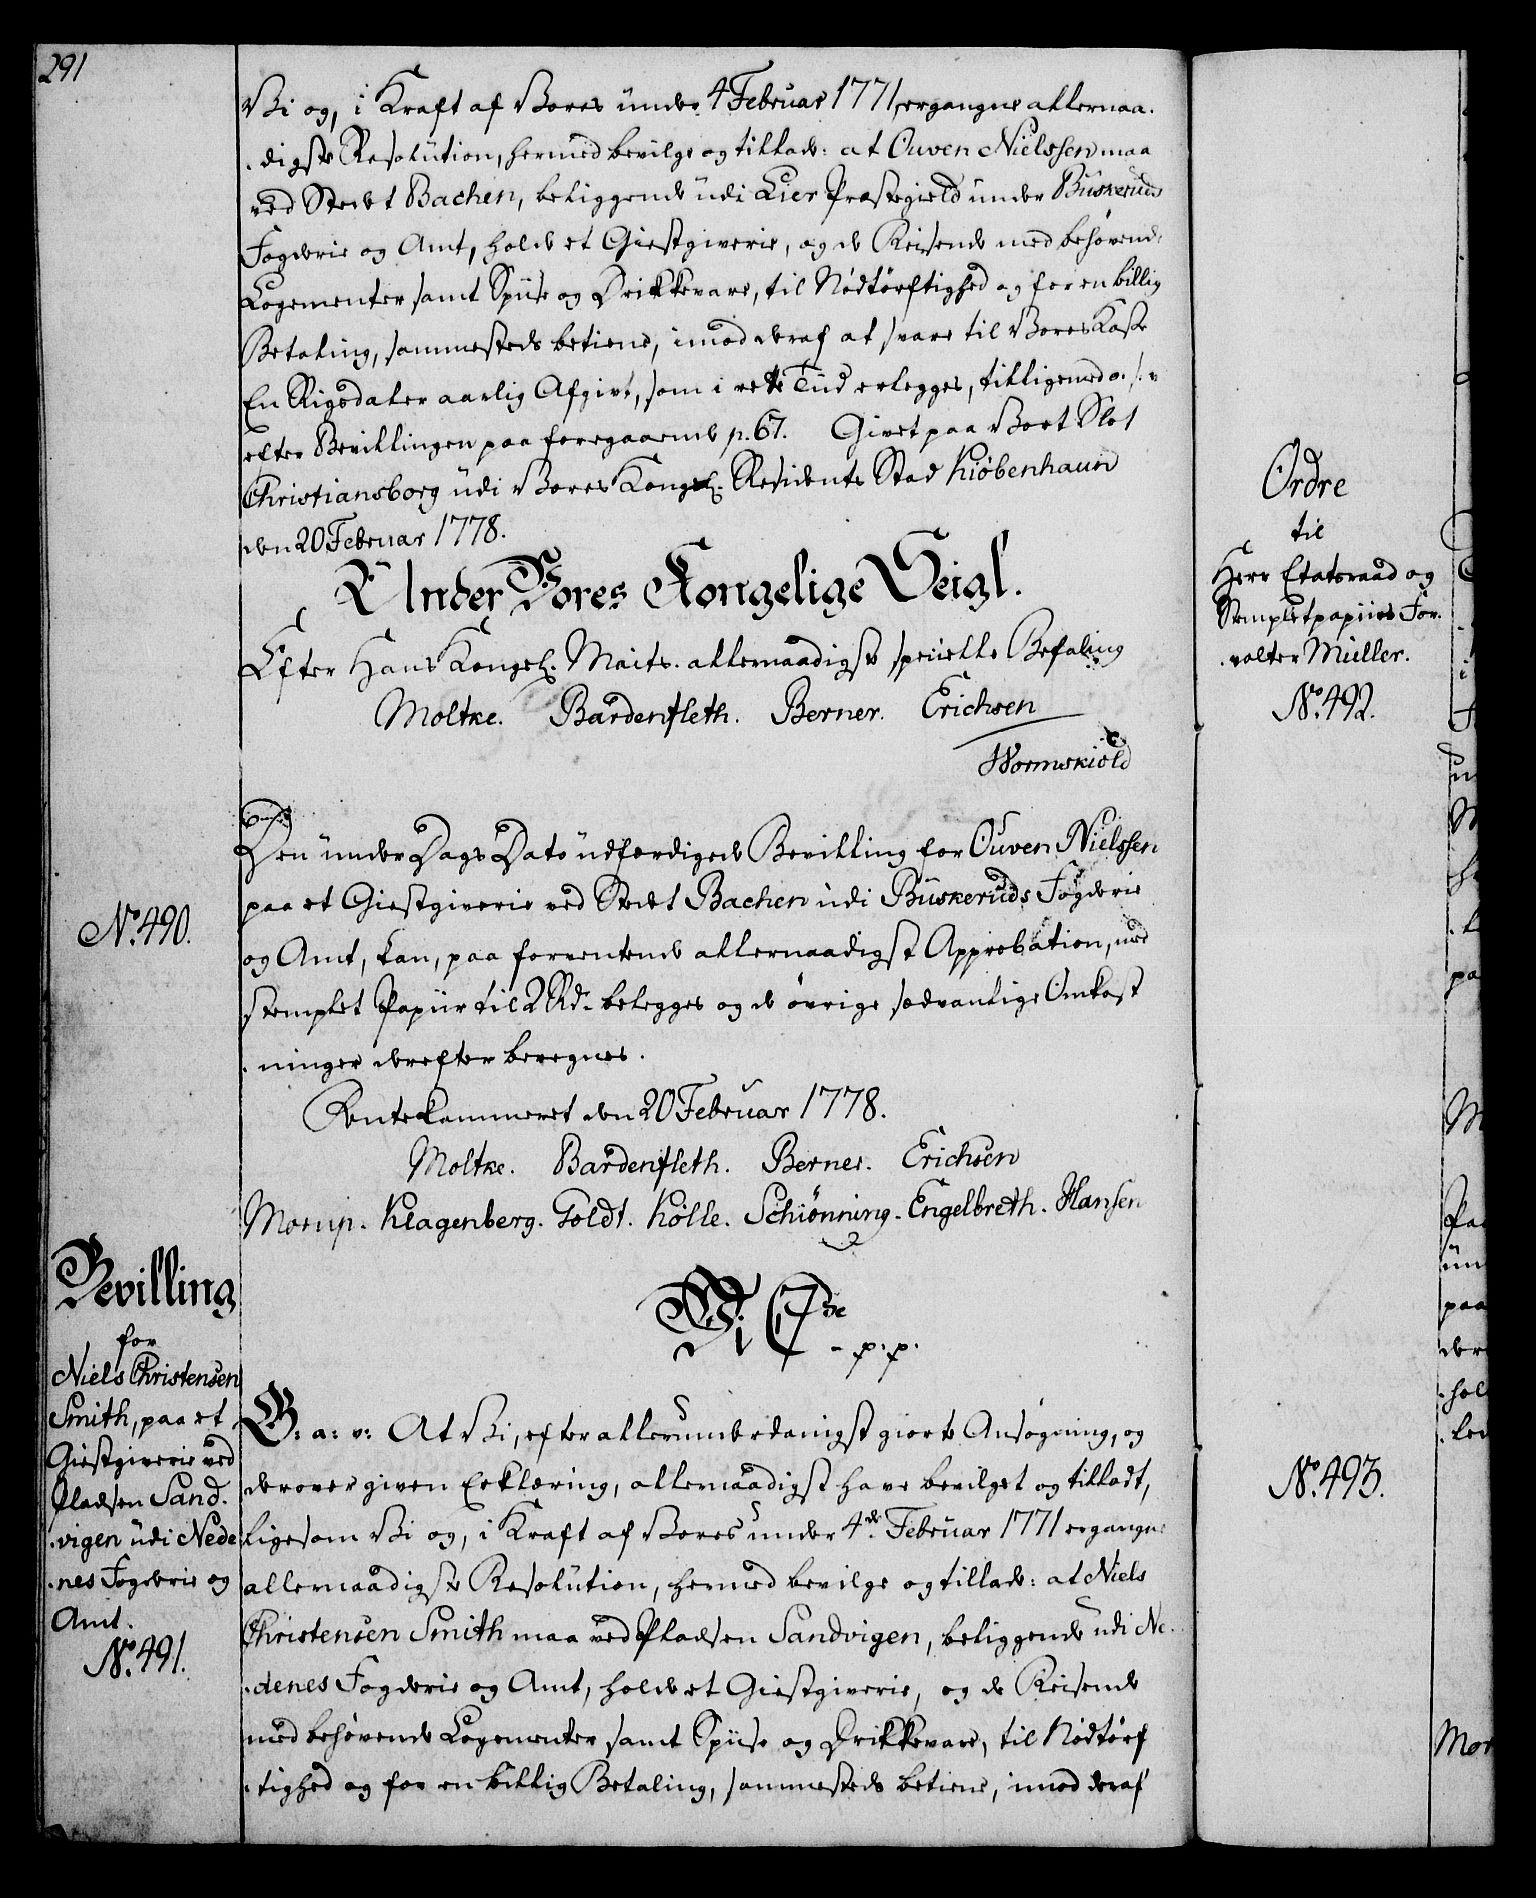 291
Vi og, i Kraft af Vores under 4 Februar 1771, ergangne allernaa-
-digste Resolution, hermed bevilge og tillade: at Ouven Nielssen maa
ved Stedet Bachen, beliggende udi Lier Præstegield under Buskeruds
Fogderie og Amt, holde et Giestgiverie, og de Reisende med behøvende
Logementer samt Spiise og Drikkevare, til Nødtørftighed og for en billig
Betaling, sammesteds betiene, imod deraf at svare til Vores Kasse
En Rigsdaler aarlig Afgivt, som i rette Tiid erlegges, tilligemed o. s. v.
efter Bevillingen paa foregaaende p. 67. Givet paa Vort Slot
Christiansborg udi Vores Kongel. Residents Stad Kiøbenhaun
den 20 Februar 1778.
Under Vores Kongelige Seigl.
Efter Hans Kongel. Maits. allernaadigste specielle Befaling
Moltke. Bardenfleth. Berner. Erichsen
Wormskiold
Den under Dags Dato udfærdigede Bevilling for Ouven Nielssen
paa et Giestgiverie ved Stedet Bachen udi Buskeruds Fogderie
og Amt, kan, paa forventende allernaadigst Approbation, med
stemplet Papiir til 2 Rd. belegges og de øvrige sædvanlige Omkost
-ninger derefter beregnes.
Rentekammeret den 20 Februar 1778.
Moltke. Bardenfleth. Berner. Erichsen
Morup. Klagenberg. Toldt. Kølle. Schiønning. Engelbreth. Hansen
No. 490.
Bevilling
for
Niels Christensen
Smith, paa et
Giestgiverie ved
Pladsen Sand-
-vigen udi Nede
-nes Fogderie og
Amt.
No. 491.
Vi C 7de
- p. p.
G: a: v: At Vi, efter allerunderdanigst giorte Ansøgning, og
derover given Erklæring, allernaadigst have bevilget og tilladt,
ligesom Vi og, i Kraft af Vores under 4de Februar 1771 ergangne
allernaadigste Resolution, hermed bevilge og tillade: at Niels
Christensen Smith maa ved Pladsen Sandvigen, beliggende udi Ne-
-denes Fogderie og Amt, holde et Giestgiverie, og de Reisende
med behøvende Logementer samt Spiise og Drikkevare, til Nødtørf
-tighed og for en billig Betaling, sammesteds betiene, imod deraf
Ordre
til
Herr Etatsraad og
Stempletpapiirs For-
-valter Müller.
No. 492.
No. 493.